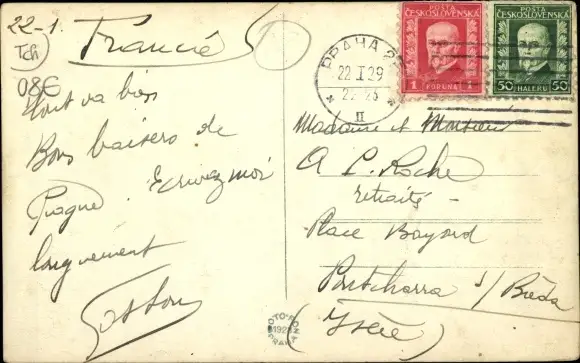 22-1.
Tch
08€
Francie
Tout va bien
Bons baisers de
Prague. Ecrivez moi
longuement
Gaston
PRAHA
22.I.29
II
POŠTA
ČESKOSLOVENSKA
1 KORUNA 1
POŠTA
ČESKOSLOVENSKA
50 HALÉŘŮ 50
Madame et Monsieur
A L. Roche
retraité
Place Bayard
Pontcharra s/ Bréda
(Isère)